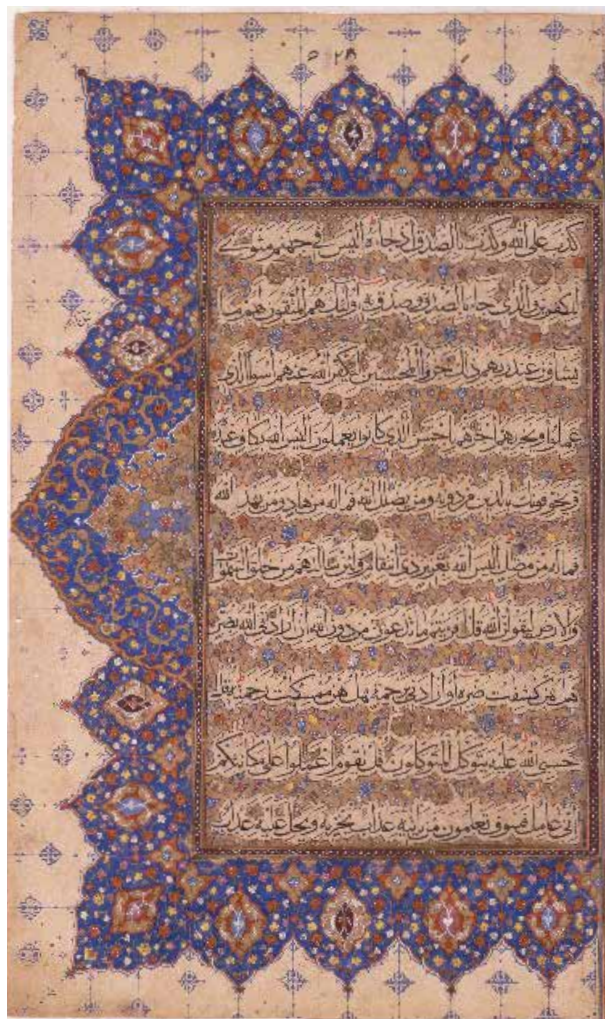 ٥٢٨
كذب على الله وكذب بالصدق اذ جاءه اليس في جهنم مثوى
للكفرين والذى جاء بالصدق وصدق به اولئك هم المتقون لهم ما
يشاؤن عند ربهم ذلك جزؤا المحسنين ليكفر الله عنهم اسوا الذى
عملوا ويجزيهم اجرهم باحسن الذى كانوا يعملون اليس الله بكاف عبده
ويخوفونك بالذين من دونه ومن يضلل الله فما له من هاد ومن يهد الله
فما له من مضل اليس الله بعزيز ذى انتقام ولئن سالتهم من خلق السموات
والارض ليقولن الله قل افرءيتم ما تدعون من دون الله ان ارادنى الله بضر
هل هن كشفت ضره او ارادنى برحمة هل هن ممسكت رحمته قل
حسبى الله عليه يتوكل المتوكلون قل يقوم اعملوا على مكانتكم
انى عامل فسوف تعلمون من ياتيه عذاب يخزيه ويحل عليه عذاب